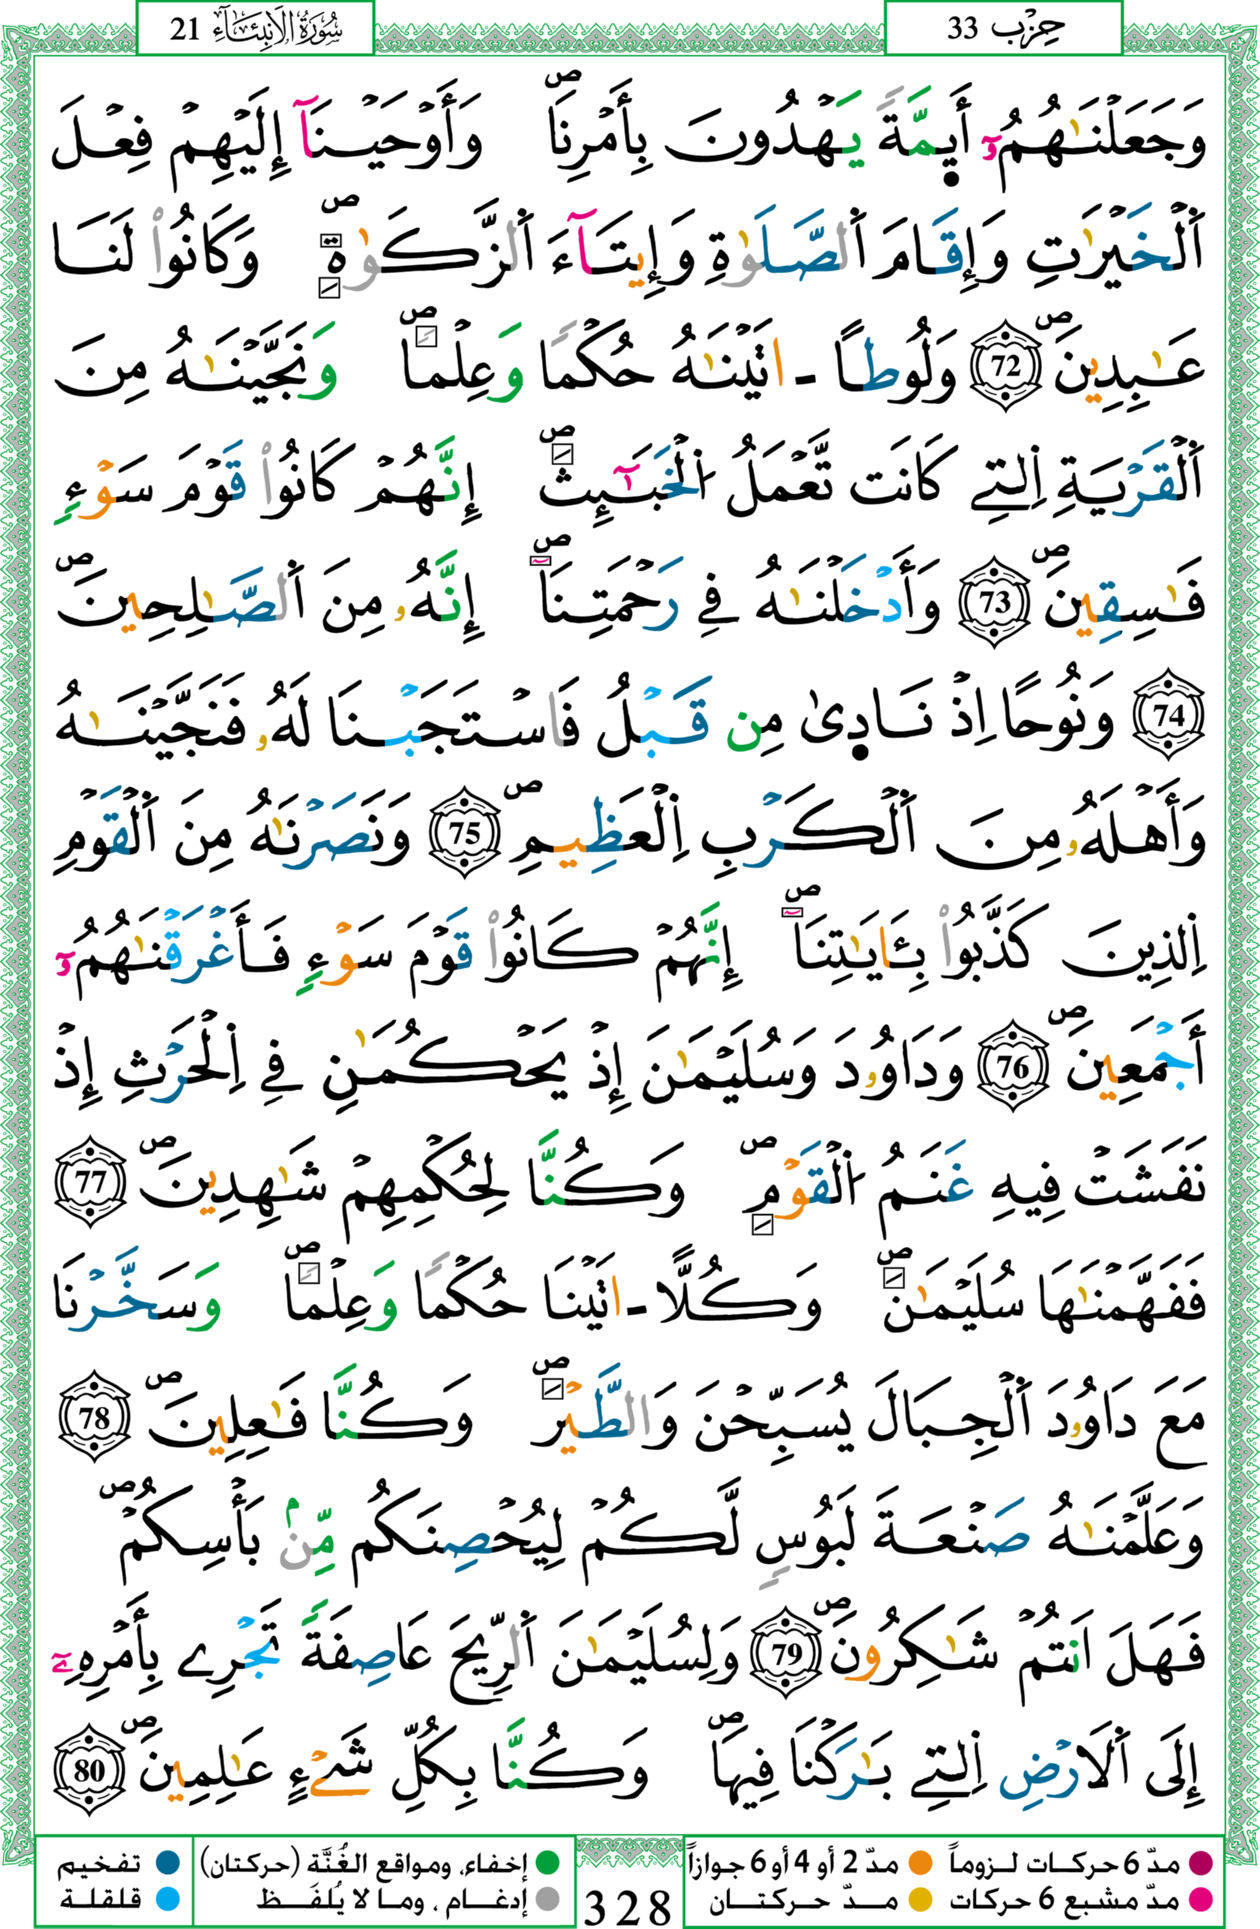 سُورَةُ الأَنبِئَاءِ 21
حِزْب 33
وَجَعَلْنَٰهُمُۥٓ أَيِمَّةً يَهْدُونَ بِأَمْرِنَاۖ وَأَوْحَيْنَآ إِلَيْهِمْ فِعْلَ
اَ۬لْخَيْرَٰتِ وَإِقَامَ اَ۬لصَّلَوٰةِ وَإِيتَآءَ اَ۬لزَّكَوٰةِۖ وَكَانُواْ لَنَا
عَٰبِدِينَۖ 72 وَلُوطاً ـ اتَيْنَٰهُ حُكْماً وَعِلْماًۖ وَنَجَّيْنَٰهُ مِنَ
اَ۬لْقَرْيَةِ اِ۬لتِے كَانَت تَّعْمَلُ اُ۬لْخَبَٰٓئِثَۖ إِنَّهُمْ كَانُواْ قَوْمَ سَوْءٍ
فَٰسِقِينَۖ 73 وَأَدْخَلْنَٰهُ فِے رَحْمَتِنَاۖ إِنَّهُۥ مِنَ اَ۬لصَّٰلِحِينَۖ
74 وَنُوحاً اِذْ نَادٜىٰ مِن قَبْلُ فَاسْتَجَبْنَا لَهُۥ فَنَجَّيْنَٰهُ
وَأَهْلَهُۥ مِنَ اَ۬لْكَرْبِ اِ۬لْعَظِيمِۖ 75 وَنَصَرْنَٰهُ مِنَ اَ۬لْقَوْمِ
اِ۬لذِينَ كَذَّبُواْ بِـَٔايَٰتِنَاۖ إِنَّهُمْ كَانُواْ قَوْمَ سَوْءٍ فَأَغْرَقْنَٰهُمُۥٓ
أَجْمَعِينَۖ 76 وَدَاوُۥدَ وَسُلَيْمَٰنَ إِذْ يَحْكُمَٰنِ فِے اِ۬لْحَرْثِ إِذْ
نَفَشَتْ فِيهِ غَنَمُ اُ۬لْقَوْمِۖ وَكُنَّا لِحُكْمِهِمْ شَٰهِدِينَۖ 77
فَفَهَّمْنَٰهَا سُلَيْمَٰنَۖ وَكُلّاً ـ اتَيْنَا حُكْماً وَعِلْماًۖ وَسَخَّرْنَا
مَعَ دَاوُۥدَ اَ۬لْجِبَالَ يُسَبِّحْنَ وَالطَّيْرَۖ وَكُنَّا فَٰعِلِينَۖ 78
وَعَلَّمْنَٰهُ صَنْعَةَ لَبُوسٍ لَّكُمْ لِيُحْصِنَكُم مِّنۢ بَأْسِكُمْۖ
فَهَلَ اَنتُمْ شَٰكِرُونَۖ 79 وَلِسُلَيْمَٰنَ اَ۬لرِّيحَ عَاصِفَةً تَجْرِے بِأَمْرِهِۦٓ
إِلَى اَ۬لَارْضِ اِ۬لتِے بَٰرَكْنَا فِيهَاۖ وَكُنَّا بِكُلِّ شَےْءٍ عَٰلِمِينَۖ 80
مدّ 6 حركات لـزوماً مدّ 2 أو 4 أو 6 جوازاً إخفاء، ومواقع الغُنَّة (حركتان) تفخيم
مدّ مشبع 6 حركات مـدّ حركتــان 328 إدغــام ، ومـا لا يُلفَــظ قلقلة